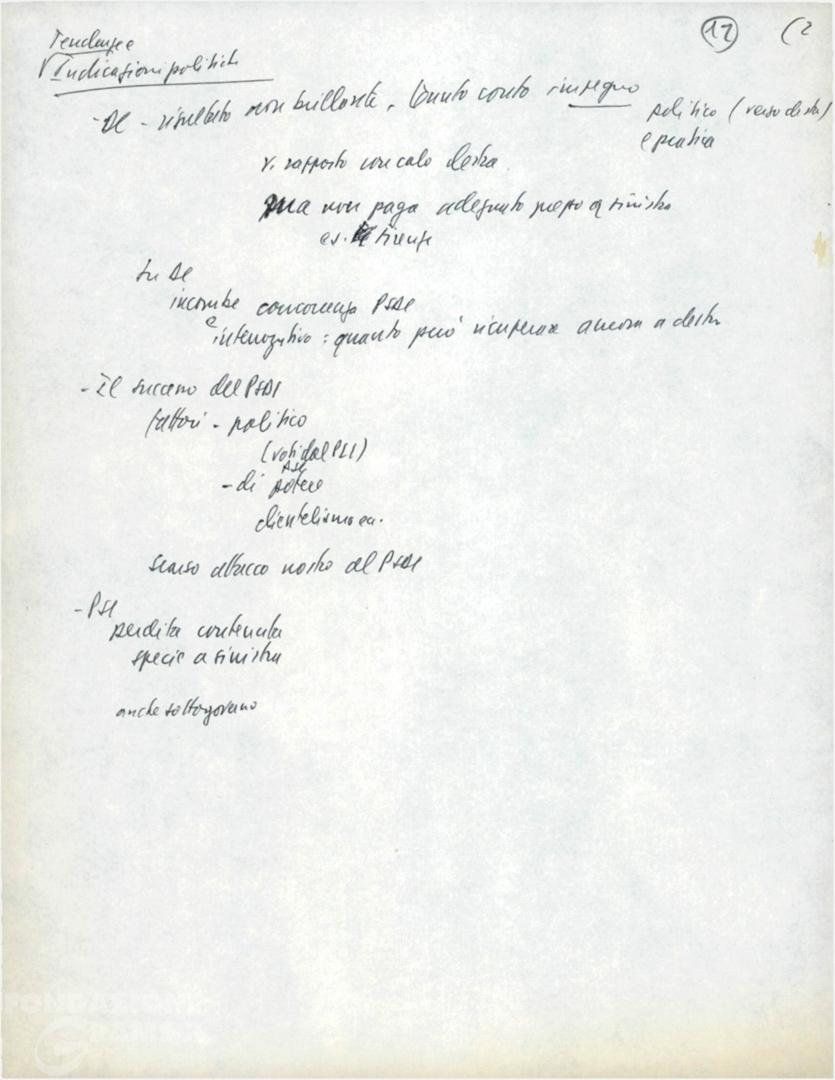 12 (2
Tendenze
Indicazioni politiche
- DC - risultato non brillante, tenuto conto impegno
politico (verso destra)
e pratica
v. rapporto con calo destra
ma non paga adeguato prezzo a sinistra
es. Firenze
Su DC
incombe concorrenza PSDI
e interrogativo: quanto può recuperare ancora a destra
- Il successo del PSDI
fattori - politico
(voti dal PSI)
- di potere
clientelismo ecc.
scarso attacco nostro al PSDI
- PSI
perdita contenuta
specie a sinistra
anche sottogoverno
FONDAZIONE
GRAMSCI